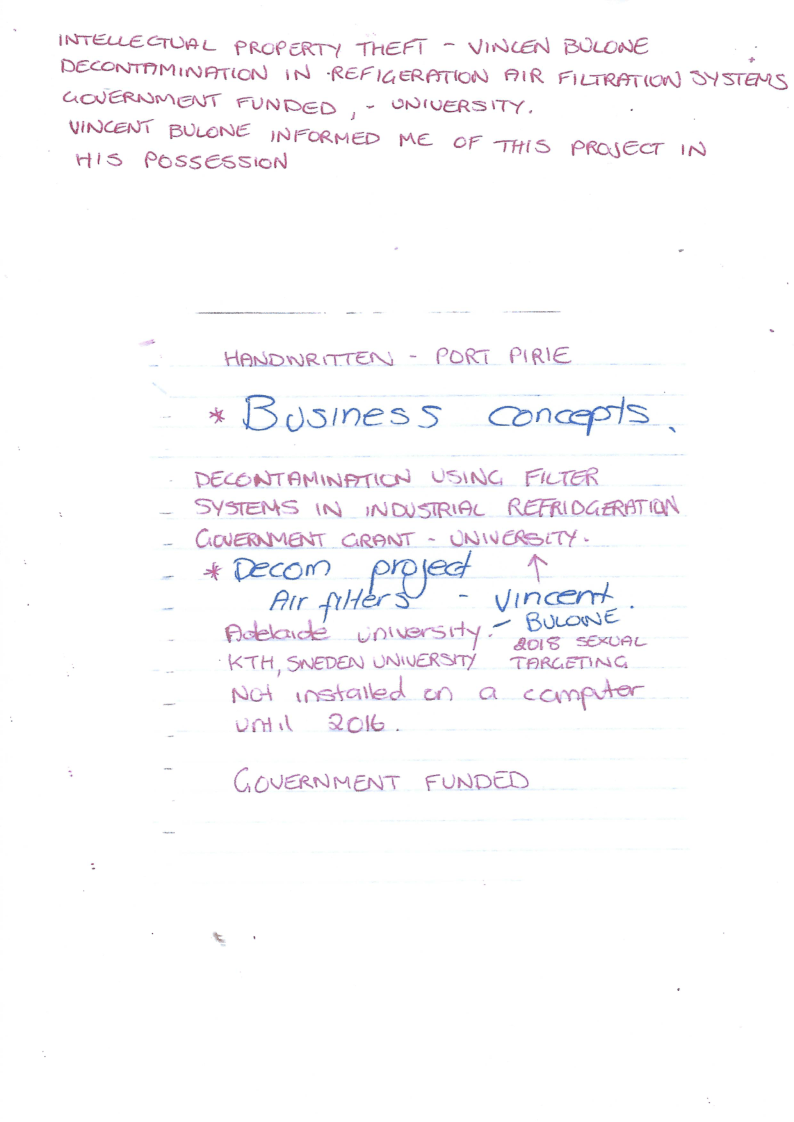 INTELLECTUAL PROPERTY THEFT - VINCEN BULONE
DECONTAMINATION IN REFIGERATION AIR FILTRATION SYSTEMS
GOVERNMENT FUNDED, - UNIVERSITY.
VINCENT BULONE INFORMED ME OF THIS PROJECT IN
HIS POSSESSION
HANDWRITTEN - PORT PIRIE
* Business concepts.
DECONTAMINATION USING FILTER
SYSTEMS IN INDUSTRIAL REFRIDGERATION
GOVERNMENT GRANT - UNIVERSITY.
* Decom project ↑
Air filters - Vincent.
Adelaide university. - BULONE
2018 SEXUAL
KTH, SWEDEN UNIVERSITY TARGETING
Not installed on a computer
until 2016.
GOVERNMENT FUNDED